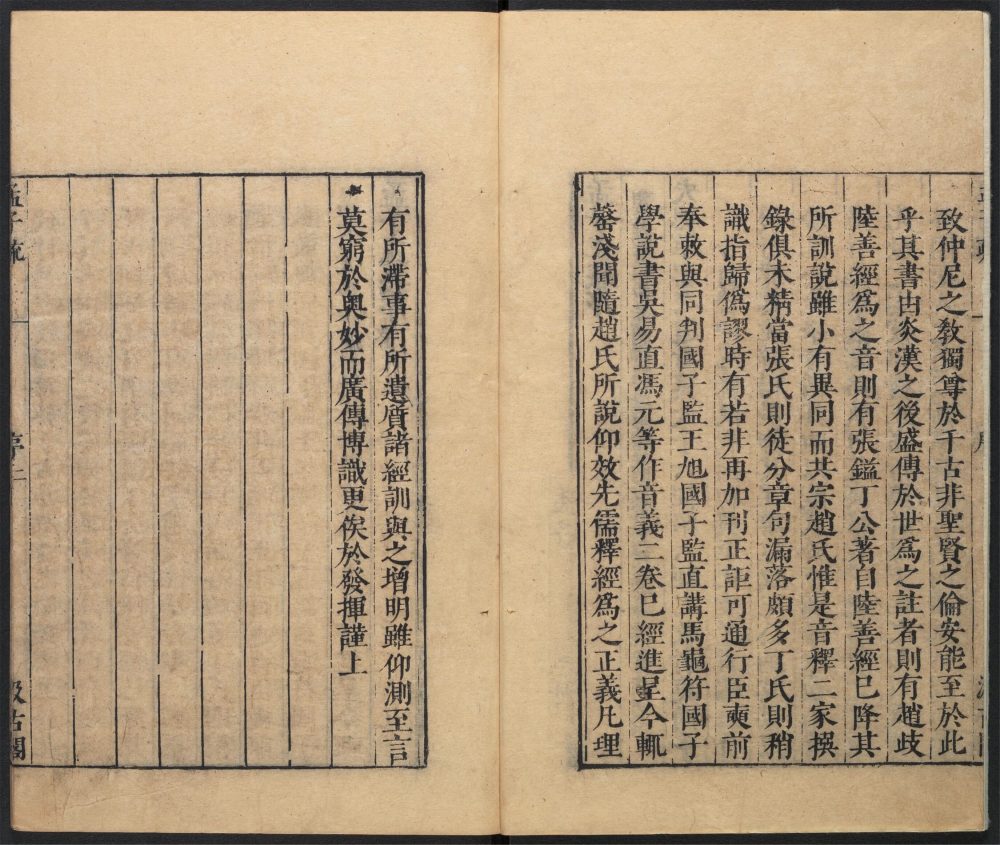 致仲尼之教獨尊於千古非聖賢之倫安能至於此
乎其書由炎漢之後盛傳於世爲之註者則有趙岐
陸善經爲之音則有張鎰丁公著自陸善經已降其
所訓說雖小有異同而共宗趙氏惟是音釋二家撰
錄俱未精當張氏則徒分章句漏落頗多丁氏則稍
識指歸僞謬時有若非再加刊正詎可通行臣奭前
奉敕與同判國子監王旭國子監直講馬龜符國子
學說書吳易直馮元等作音義二卷已經進呈今輒
罄淺聞隨趙氏所說仰效先儒釋經爲之正義凡理
有所滯事有所遺質諸經訓與之增明雖仰測至言
莫窮於奥妙而廣傳博識更俟於發揮謹上
孟子疏
序二
汲古閣